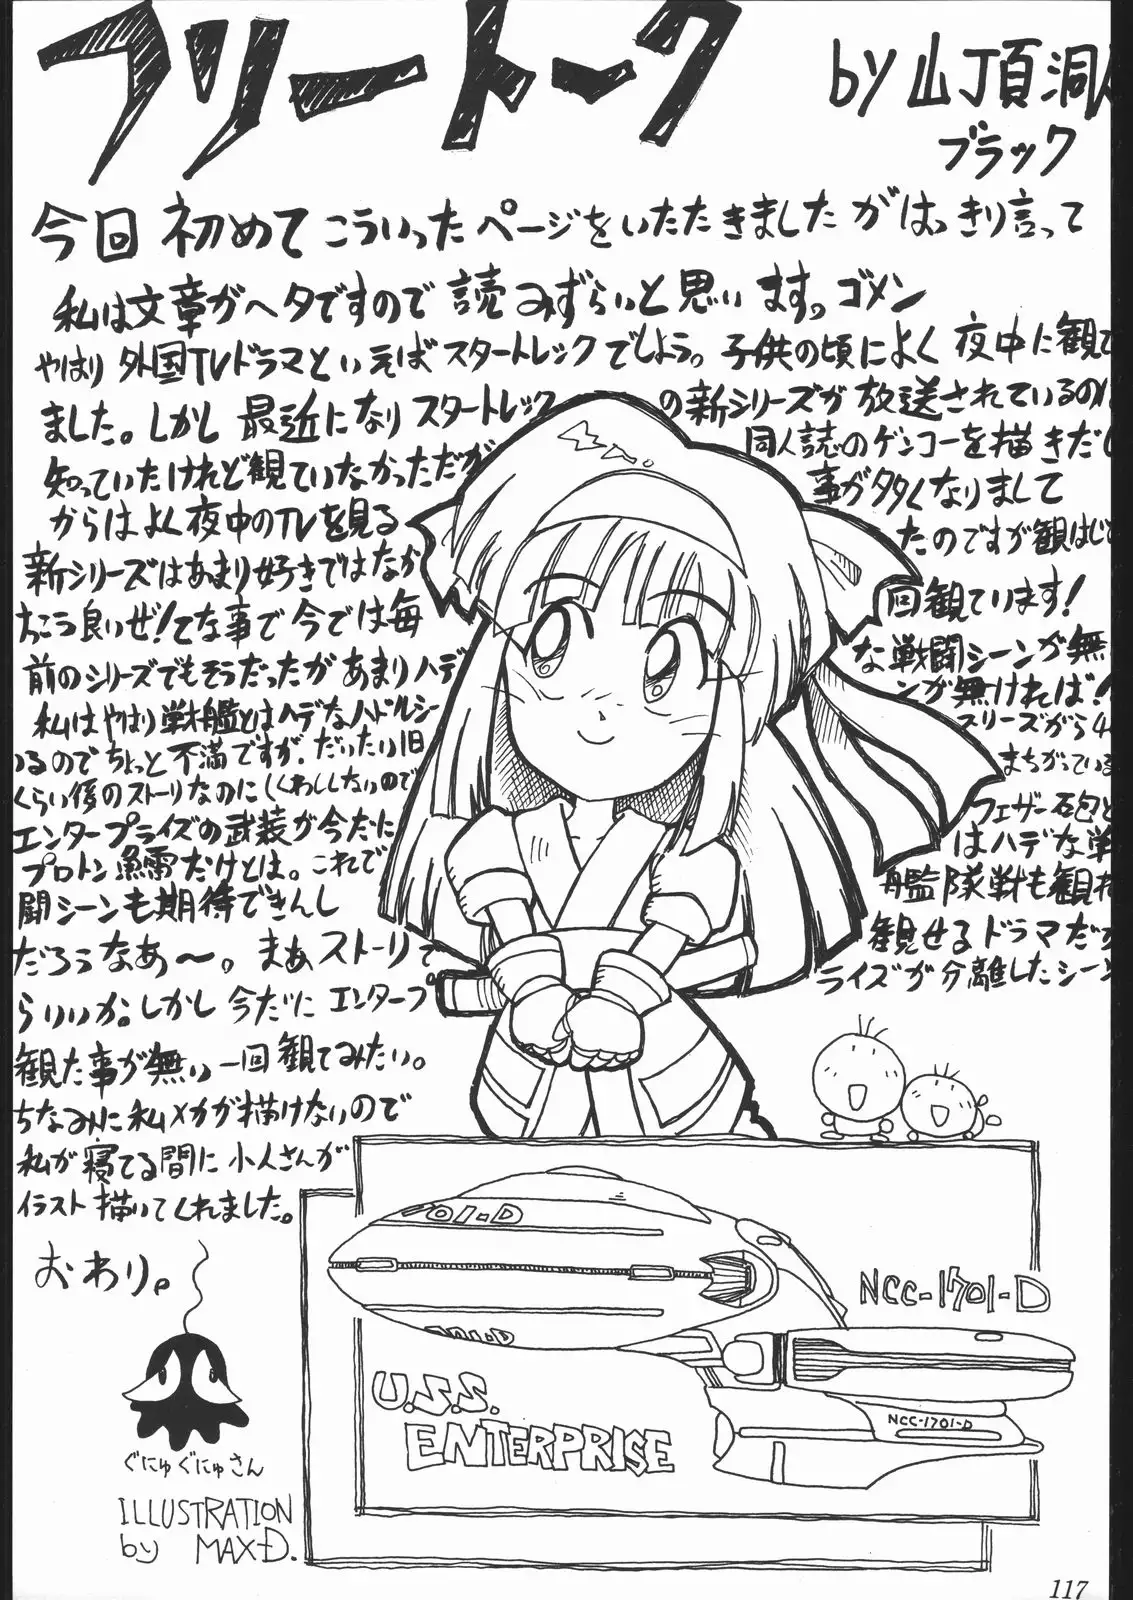 フリートーク
by 山頂洞人
ブラック
今回 初めて こういった ページを いただきましたが はっきり言って
私は文章がヘタですので 読みずらいと思います。ゴメン
やはり 外国TVドラマといえば スタートレックでしょう。子供の頃によく 夜中に観て
ました。しかし 最近になり スタートレック の新シリーズが放送されているのは
知っていたけれど観ていなかっただが 同人誌のゲンコーを描きだし
からはよく夜中のTVを見る 事が多くなりまして
新シリーズはあまり好きではなか たのですが観はじ
ちこう良いぜ!てな事で今では毎 回観ています!
前のシリーズでもそうだったが あまりハデ な戦闘シーンが無
私はやはり戦艦とはハデなハドルシー ンが無ければ!
いるので ちょっと 不満ですが、だいたい旧 スリーズがら4
くらい後のストーリなのに(くわしくないので まちがっている
エンタープライズの武装が今だに フェザー砲と
プロトン魚雷だけとは。これで はハデな戦
闘シーンも期待できんし 艦隊戦も観れ
だろうなあ〜。まあストーリで 観せるドラマだか
らいいか。しかし 今だに エンタープ ライズが分離したシーン
観た事が無い 一回観てみたい。
ちなみに私メカが描けないので
私が寝てる間に 小人さんが
イラスト描いてくれました。
おわり。
ぐにゅぐにゅさん
ILLUSTRATION
by MAX-D.
701-D
701-D
NCC-1701-D
NCC-1701-D
U.S.S.
ENTERPRISE
117